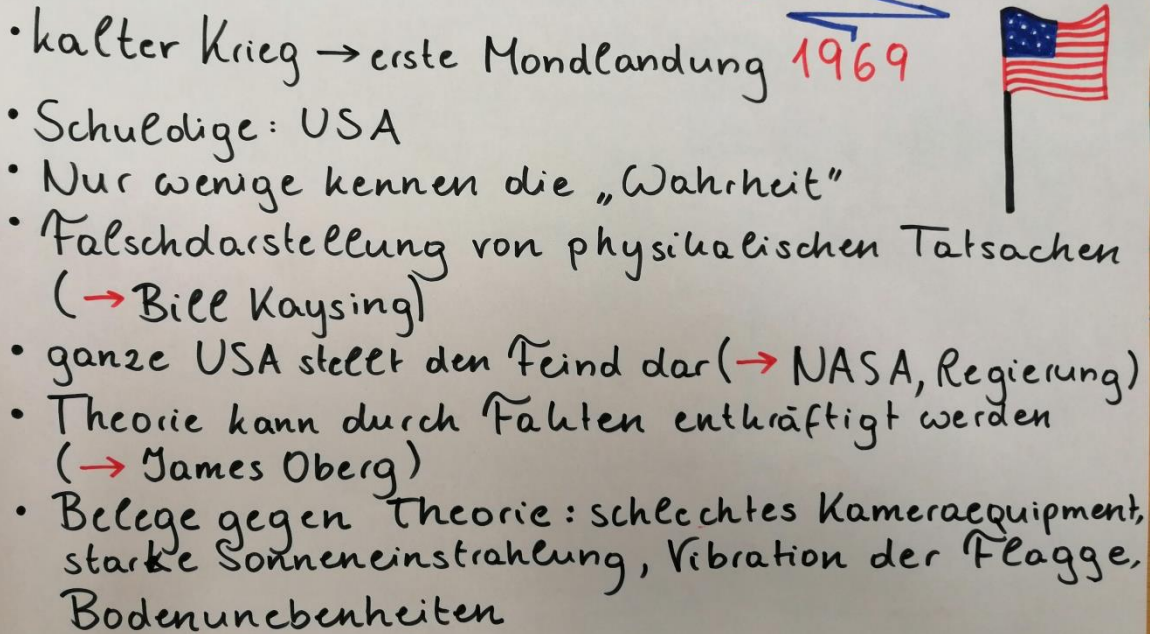 • kalter Krieg → erste Mondlandung 1969
• Schuldige: USA
• Nur wenige kennen die „Wahrheit"
• Falschdarstellung von physikalischen Tatsachen
(→ Bill Kaysing)
• ganze USA stellt den Feind dar (→ NASA, Regierung)
• Theorie kann durch Fakten entkräftigt werden
(→ James Oberg)
• Belege gegen Theorie: schlechtes Kameraequipment,
starke Sonneneinstrahlung, Vibration der Flagge,
Bodenunebenheiten